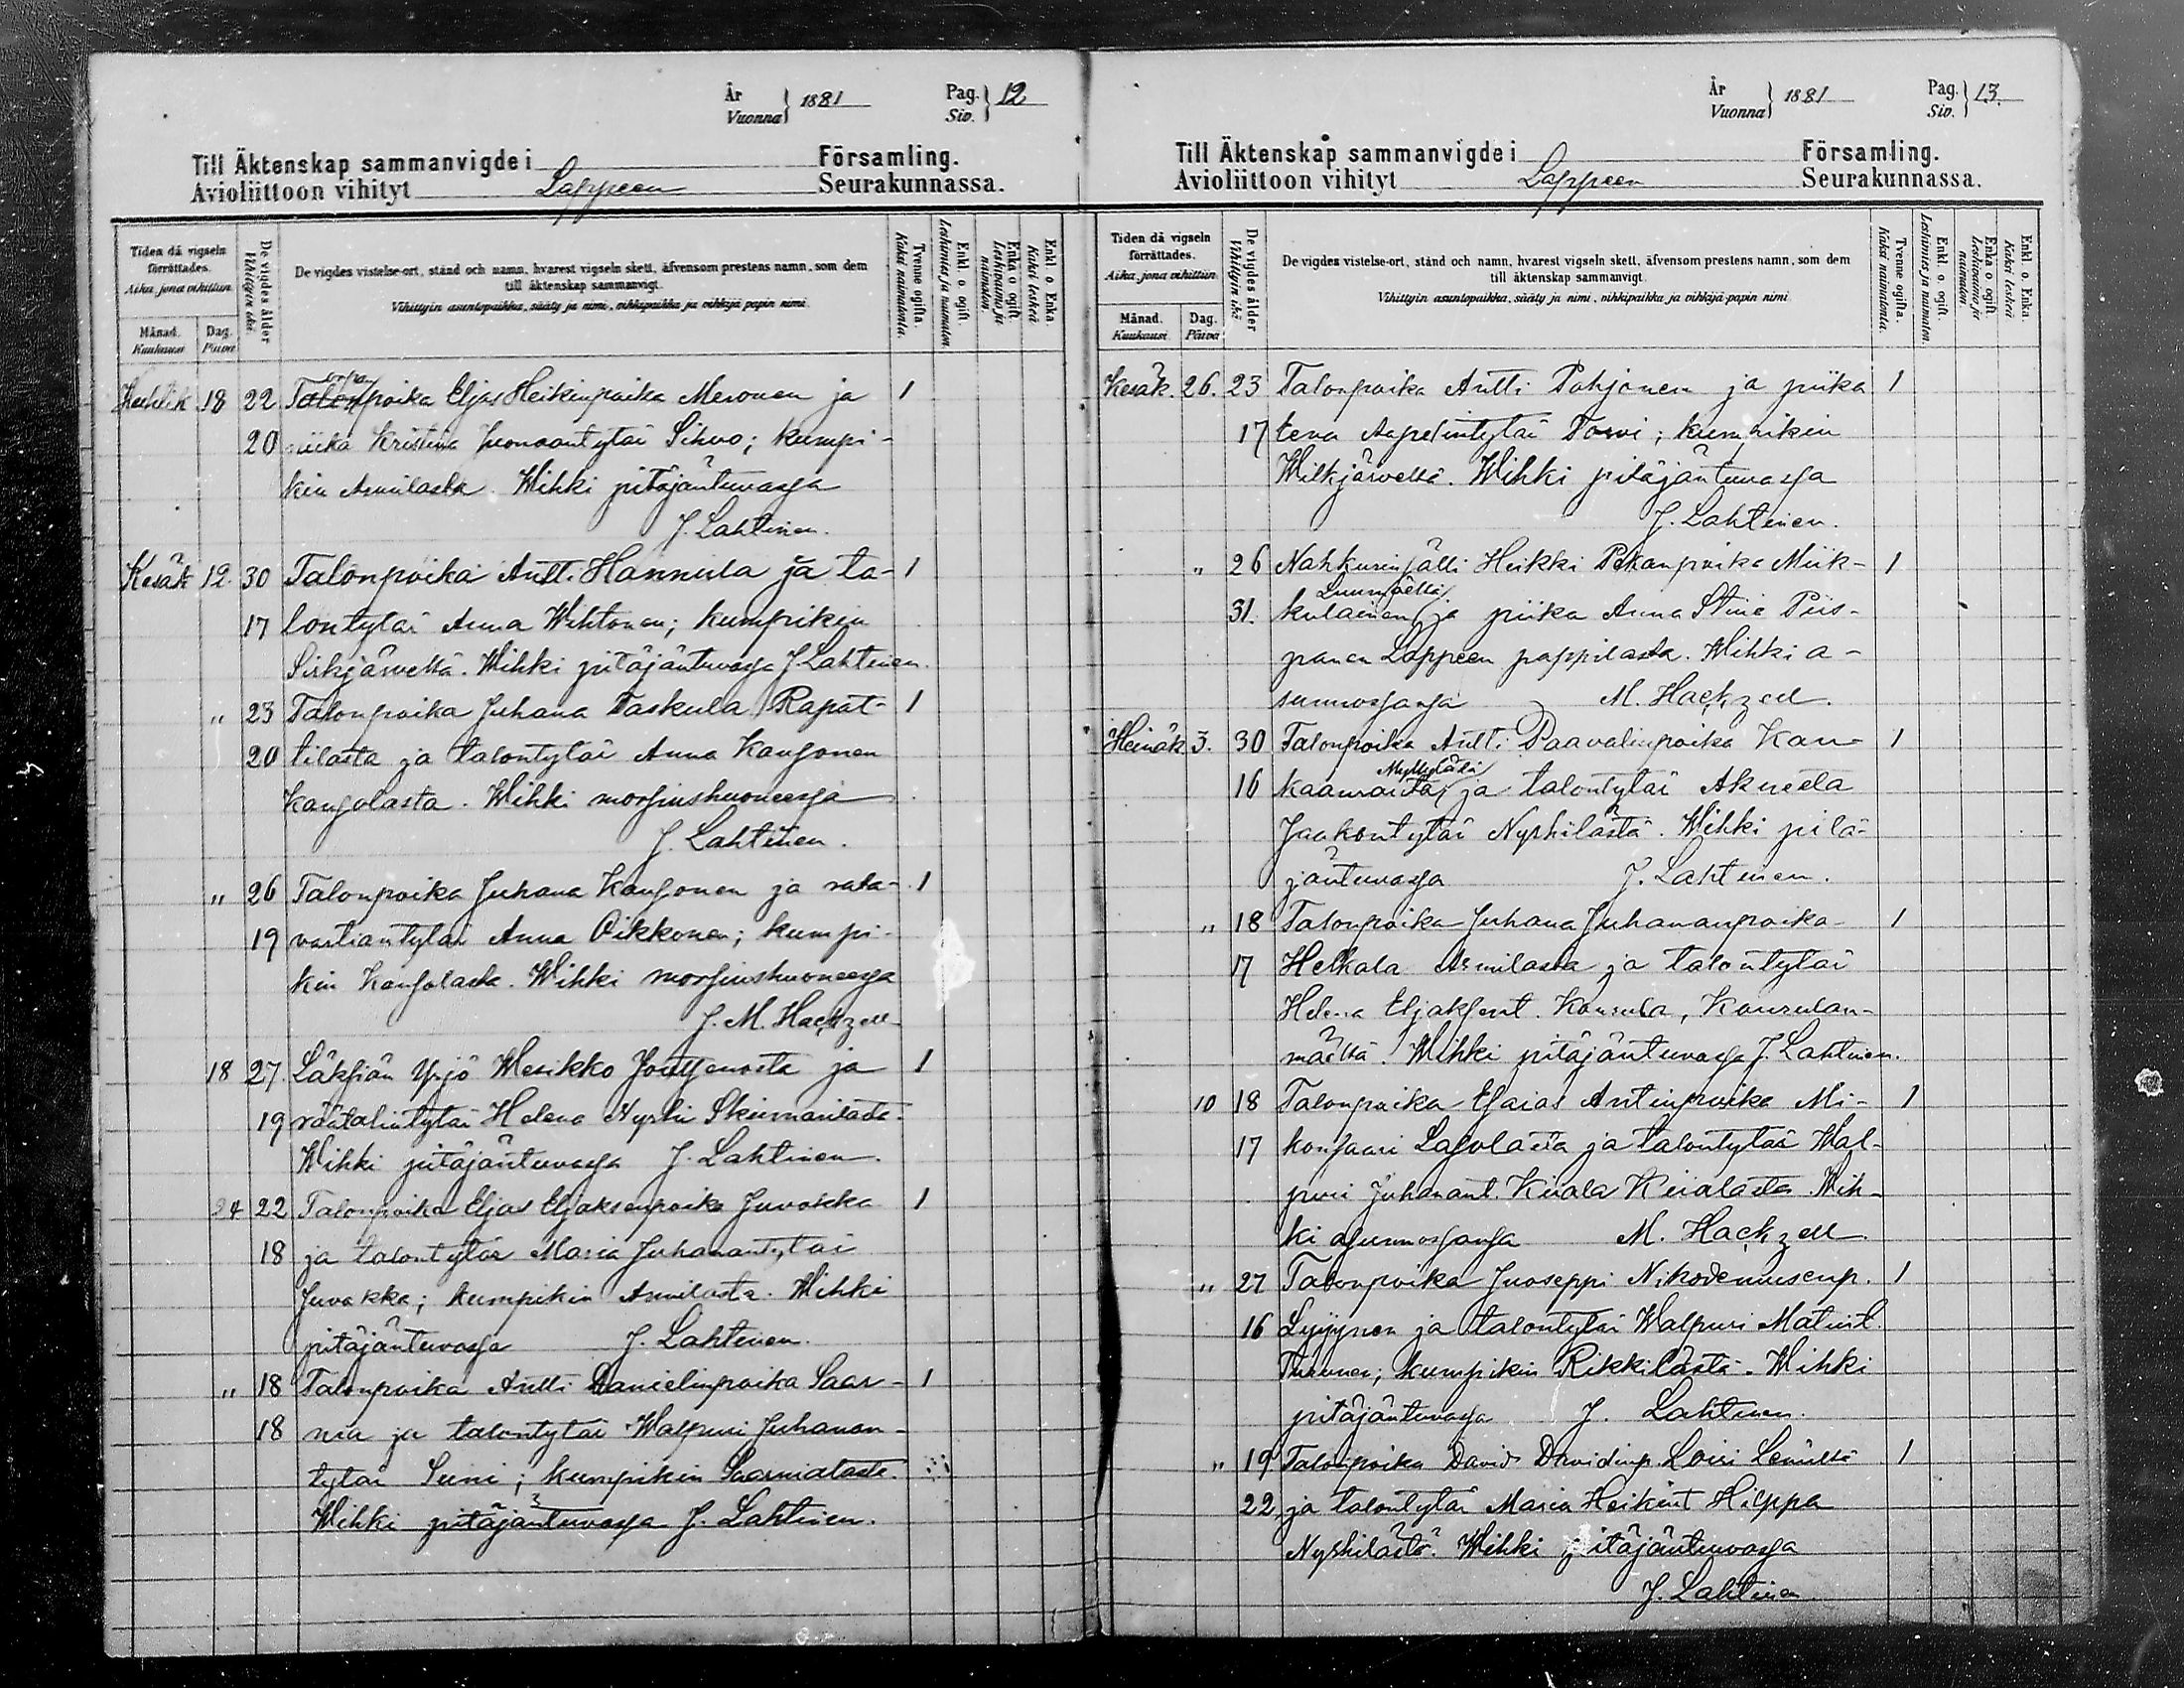 År
Vuonna } 1881 Pag.
Siv. } 12
Till Äktenskap sammanvigde i Församling.
Avioliittoon vihityt Lappeen Seurakunnassa.
Tiden då vigseln förrättades.
Aika, jona vihittiin.
Månad.
Kuukausi
Dag.
Päivä
De vigdes ålder
Vihittyin ikä
De vigdes vistelse-ort, stånd och namn, hvarest vigseln skett, äfvensom prestens namn, som dem
till äktenskap sammanvigt.
Vihittyin asuntopaikka, sääty ja nimi, vihkipaikka ja vihkijä papin nimi.
Tvenne ogifta.
Kaksi naimatonta.
Enkl. o. ogift.
Leskimies ja naimaton.
Enka o ogift.
Leskivaimo ja naimaton.
Enkl. o. Enka.
Kaksi leskeä
18 22 poika Eljas Heikinpoika Meronen ja 1
20 piika Kristina Sihvo; kumpi-
kin Armilasta. Wihki pitäjäntuvassa
J. Lahtinen.
Kesäk 12. 30 Talonpoika Antti Hannula ja ta- 1
17 lontytär Anna Wihtonen; kumpikin
Sirkjärveltä. Wihki pitäjäntuvassa J. Lahtinen.
" 23 Talonpoika Juhana Taskula Rapat- 1
20 tilasta ja talontytär Anna Kansonen
Kansolasta. Wihki morsiushuoneessa
J. Lahtinen.
" 26 Talonpoika Juhana Kansonen ja rata- 1
19 vartiantytär Anna Oikkonen; kumpi-
kin Kansolasta. Wihki morsiushuoneessa
J. M. Hackzell
18 27. Läksiän Yrjö Mesikko Joutsenosta ja 1
19 räätälintytär Helena Nyrhi
Wihki pitäjäntuvassa J. Lahtinen.
24 22 Talonpoika Eljas Eljaksenpoika Juvakka 1
18 ja talontytär Maria Juhanantytär
Juvakka; kumpikin Armilasta. Wihki
pitäjäntuvassa J. Lahtinen.
" 18 Talonpoika Antti Danielinpoika Saar- 1
18 nia ja talontytär Walpuri Juhanan-
tytär Suni; kumpikin Saarnialasta.
Wihki pitäjäntuvassa J. Lahtinen.
År
Vuonna } 1881 Pag.
Siv. } 13.
Till Äktenskap sammanvigde i Församling.
Avioliittoon vihityt Lappeen Seurakunnassa.
Tiden då vigseln förrättades.
Aika, jona vihittiin
Månad.
Kuukausi
Dag.
Päivä
De vigdes ålder
Vihittyin ikä
De vigdes vistelse-ort, stånd och namn, hvarest vigseln skett, äfvensom prestens namn, som dem
till äktenskap sammanvigt.
Vihittyin asuntopaikka, sääty ja nimi, vihkipaikka ja vihkijä-papin nimi.
Tvenne ogifta.
Kaksi naimatonta.
Enkl. o. ogift.
Leskimies ja naimaton.
Enka o ogift
Leskivaimo ja naimaton.
Enkl. o. Enka.
Kaksi leskeä
Kesäk. 26. 23 Talonpoika Antti Pohjonen ja piika 1
17 Aapelintytär Torvi; kumpikin
Wilkjärveltä. Wihki pitäjäntuvassa
J. Lahtinen.
" 26 Nahkurinsälli Heikki Pekanpoika Miik- 1
Luumäeltä
31. kulainen, ja piika Anna Stiina Piis-
panen Lappeen pappilasta. Wihki a-
sunnossansa M. Hackzell.
Heinäk 3. 30 Talonpoika Antti Paavalinpoika Kau- 1
16 ja talontytär Akneeta
Jaakontytär Nyrhilästä. Wihki pitä-
jäntuvassa J. Lahtinen.
" 18 Talonpoika Juhana Juhananpoika 1
17 Heikala Armilasta ja talontytär
Helena Eljaksent. Kourula, Kourulan-
mäeltä. Wihki pitäjäntuvassa J. Lahtinen.
10 18 Talonpoika Esaias Antinpoika Mi- 1
17 konsaari Lasolasta ja talontytär Wal-
puri Juhanant. Kiiala Kiialasta Wih-
ki asunnossansa M. Hackzell
" 27 Talonpoika Juoseppi Nikodemusenp. 1
16 Lyijynen ja talontytär Walpuri Matint.
Turunen; kumpikin Rikkilästä. Wihki
pitäjäntuvassa J. Lahtinen.
" 19 Talonpoika David Davidinp. Loiri Lemiltä 1
22 ja talontytär Maria Heikint Hilppa
Nyrhilästä. Wihki pitäjäntuvassa
J. Lahtinen